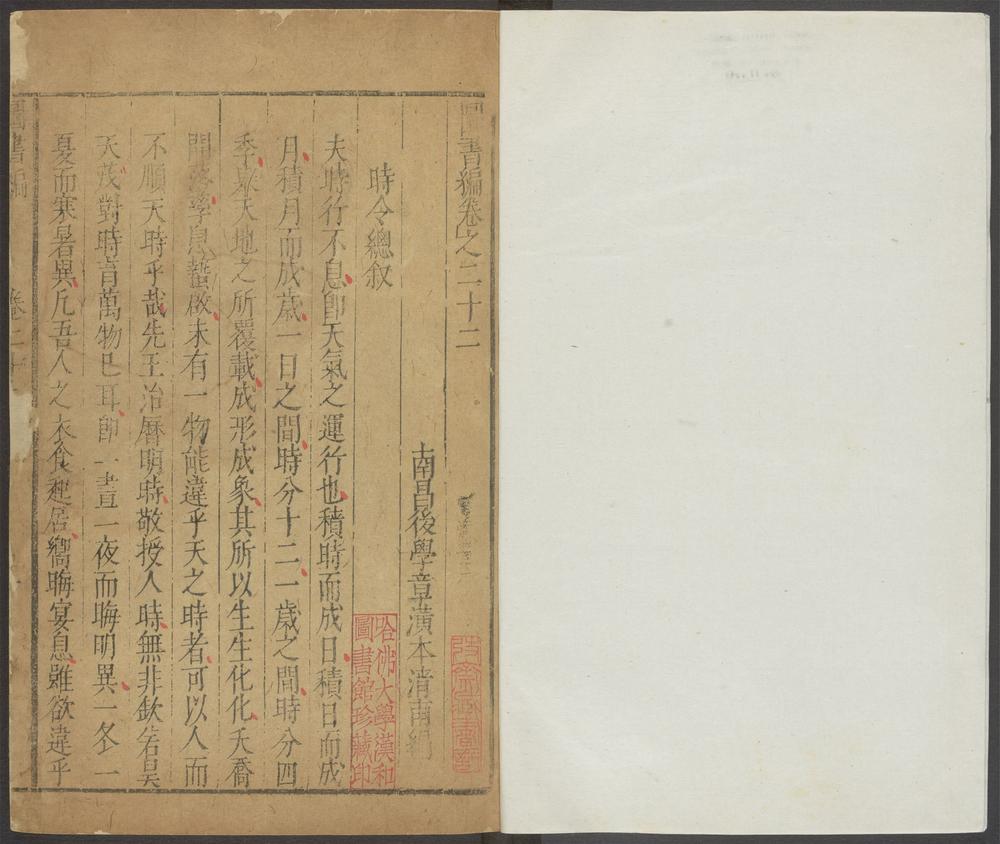 圖書編卷之二十二
南昌後學章潢本清甫編
時令總叙
夫時行不息即天氣之運行也積時而成日積日而成
月積月而成歲一日之間時分十二一歲之間時分四
季泉天地之所覆載成形成象其所以生生化化夭喬
開落孳息蟄啟未有一物能違乎天之時者可以人而
不順天時乎哉先王治曆明時敬授人時無非欽若昊
天茂對時育萬物已耳即一晝一夜而晦明異一冬一
夏而寒暑異凡吾人之衣食起居嚮晦宴息雖欲違乎
圖書編
卷二十
哈佛大學漢和
圖書館珍藏印